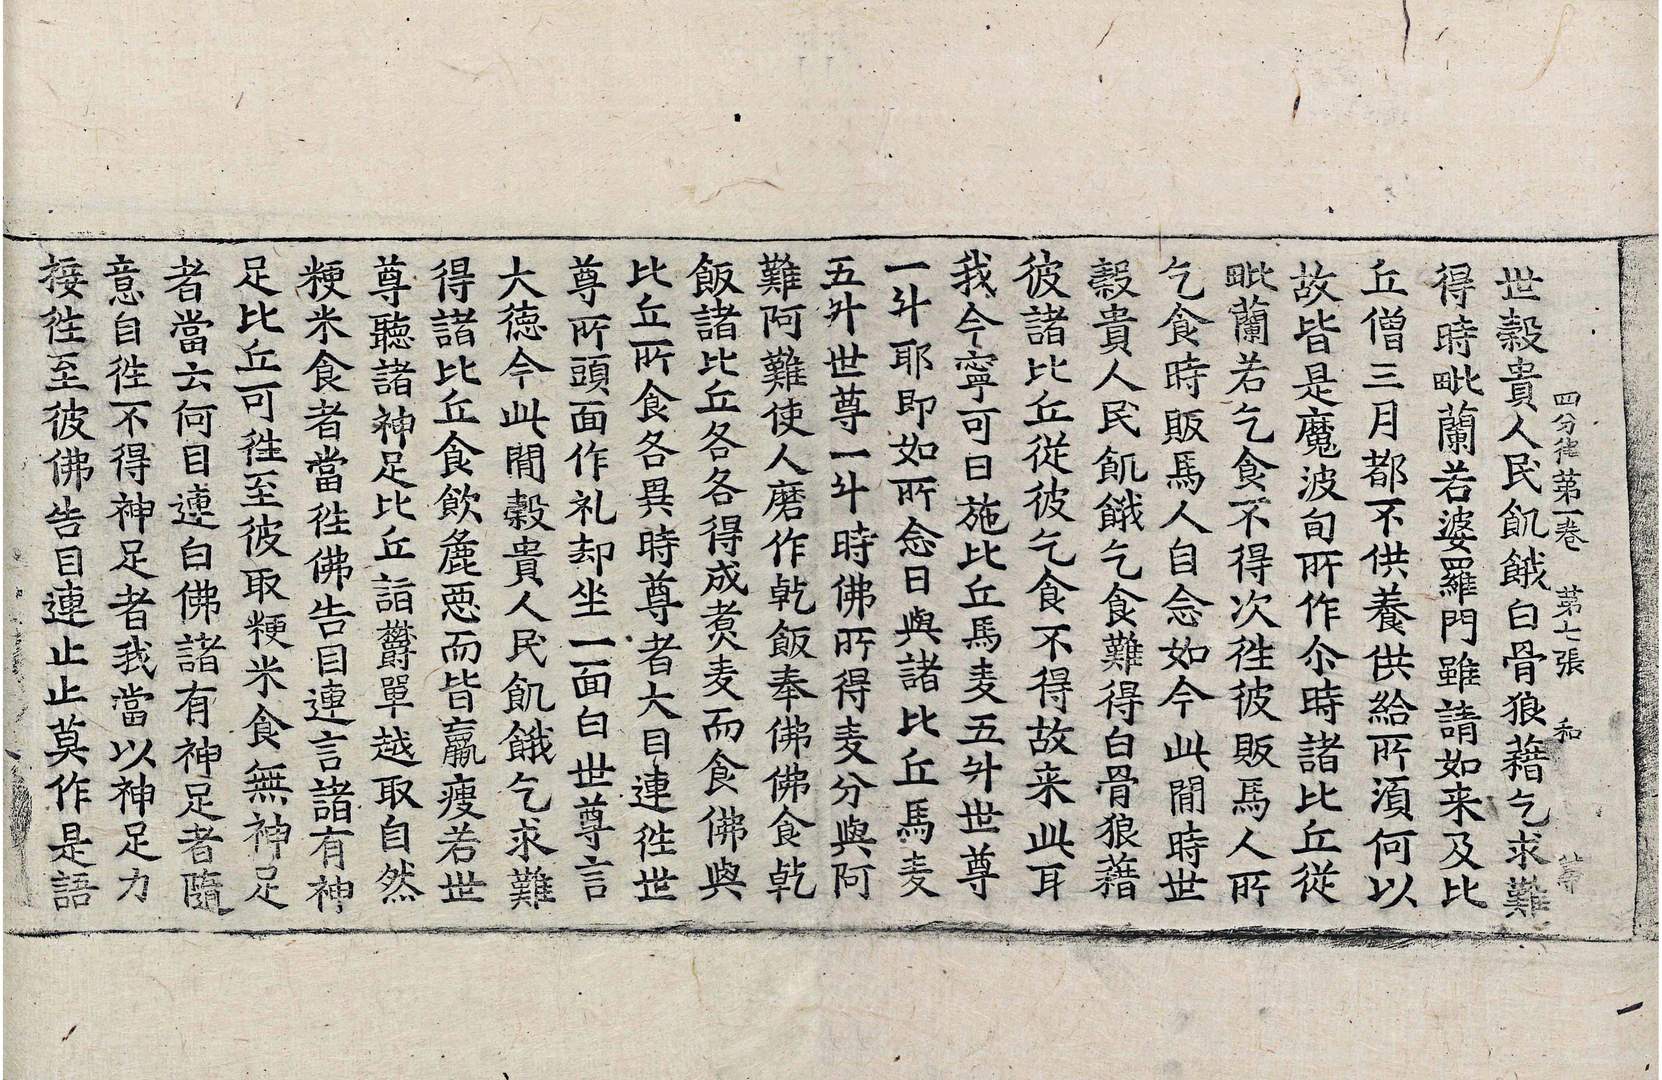 四分律第一卷 第七張 和
世穀貴人民飢餓白骨狼藉乞求難
得時毗蘭若婆羅門雖請如来及比
丘僧三月都不供養供給所湏何以
故皆是魔波旬所作尒時諸比丘從
毗蘭若乞食不得次徃彼販馬人所
乞食時販馬人自念如今此閒時世
穀貴人民飢餓乞食難得白骨狼藉
彼諸比丘從彼乞食不得故来此耳
我今寧可日施比丘馬麦五升世尊
一斗耶即如所念日與諸比丘馬麦
五升世尊一斗時佛所得麦分與阿
難阿難使人磨作乾飯奉佛佛食乾
飯諸比丘各各得成煑麦而食佛與
比丘所食各異時尊者大目連徃世
尊所頭面作礼却坐一面白世尊言
大德今此閒穀貴人民飢餓乞求難
得諸比丘食飲麁恶而皆羸瘦若世
尊聽諸神足比丘詣欝單越取自然
粳米食者當徃佛告目連言諸有神
足比丘可徃至彼取粳米食無神足
者當云何目連白佛諸有神足者隨
意自徃不得神足者我當以神足力
接徃至彼佛告目連止止莫作是語